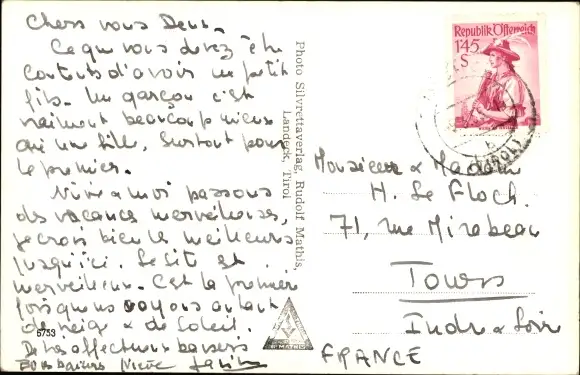 Chers vous Deux,
Ce que vous devez être
contents d'avoir un petit
fils. Un garçon c'est
vraiment beaucoup mieux
qu'une fille, surtout pour
le premier.
Nine & moi passons
des vacances merveilleuses,
je crois bien les meilleures
jusqu'ici. Le site est
merveilleux. C'est la première
fois que ns voyons autant
de neige & de Soleil.
De très affectueux baisers
Bons baisers Nine
6753
Photo Silvrettaverlag, Rudolf Mathis,
Landeck, Tirol
Republik Österreich
1'45
S
(TIROL)
Monsieur & Madame
H. Le Floch.
71, rue Mirabeau
Tours
Indre & Loire
FRANCE